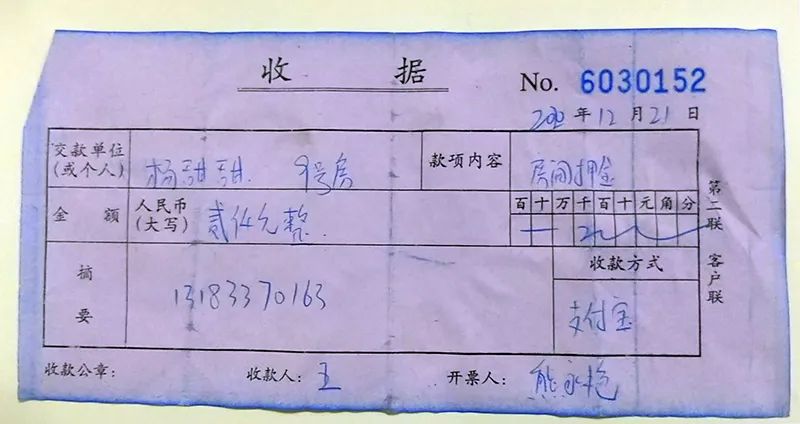 收据
No. 6030152
2020年12月21日
交款单位
(或个人)
杨甜甜 9号房
款项内容
房间押金
金额
人民币
(大写)
贰仟元整
百十万千百十元角分
摘要
13183370163
收款方式
支付宝
第二联 客户联
收款公章：
收款人：王
开票人：熊永艳